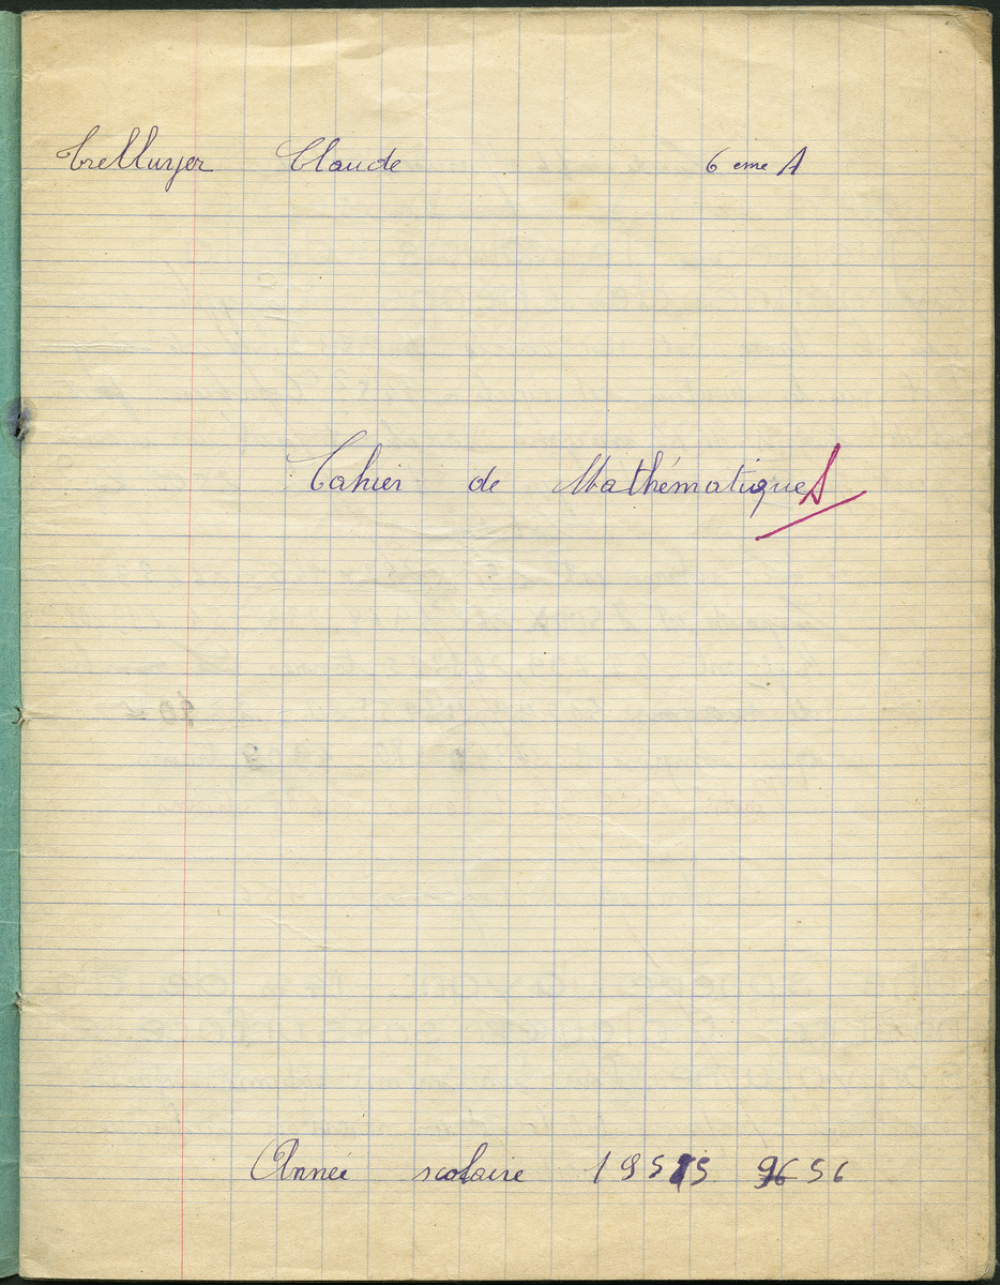 Trelluyer Claude 6 eme A
Cahier de Mathématiques
Année scolaire 1955 56